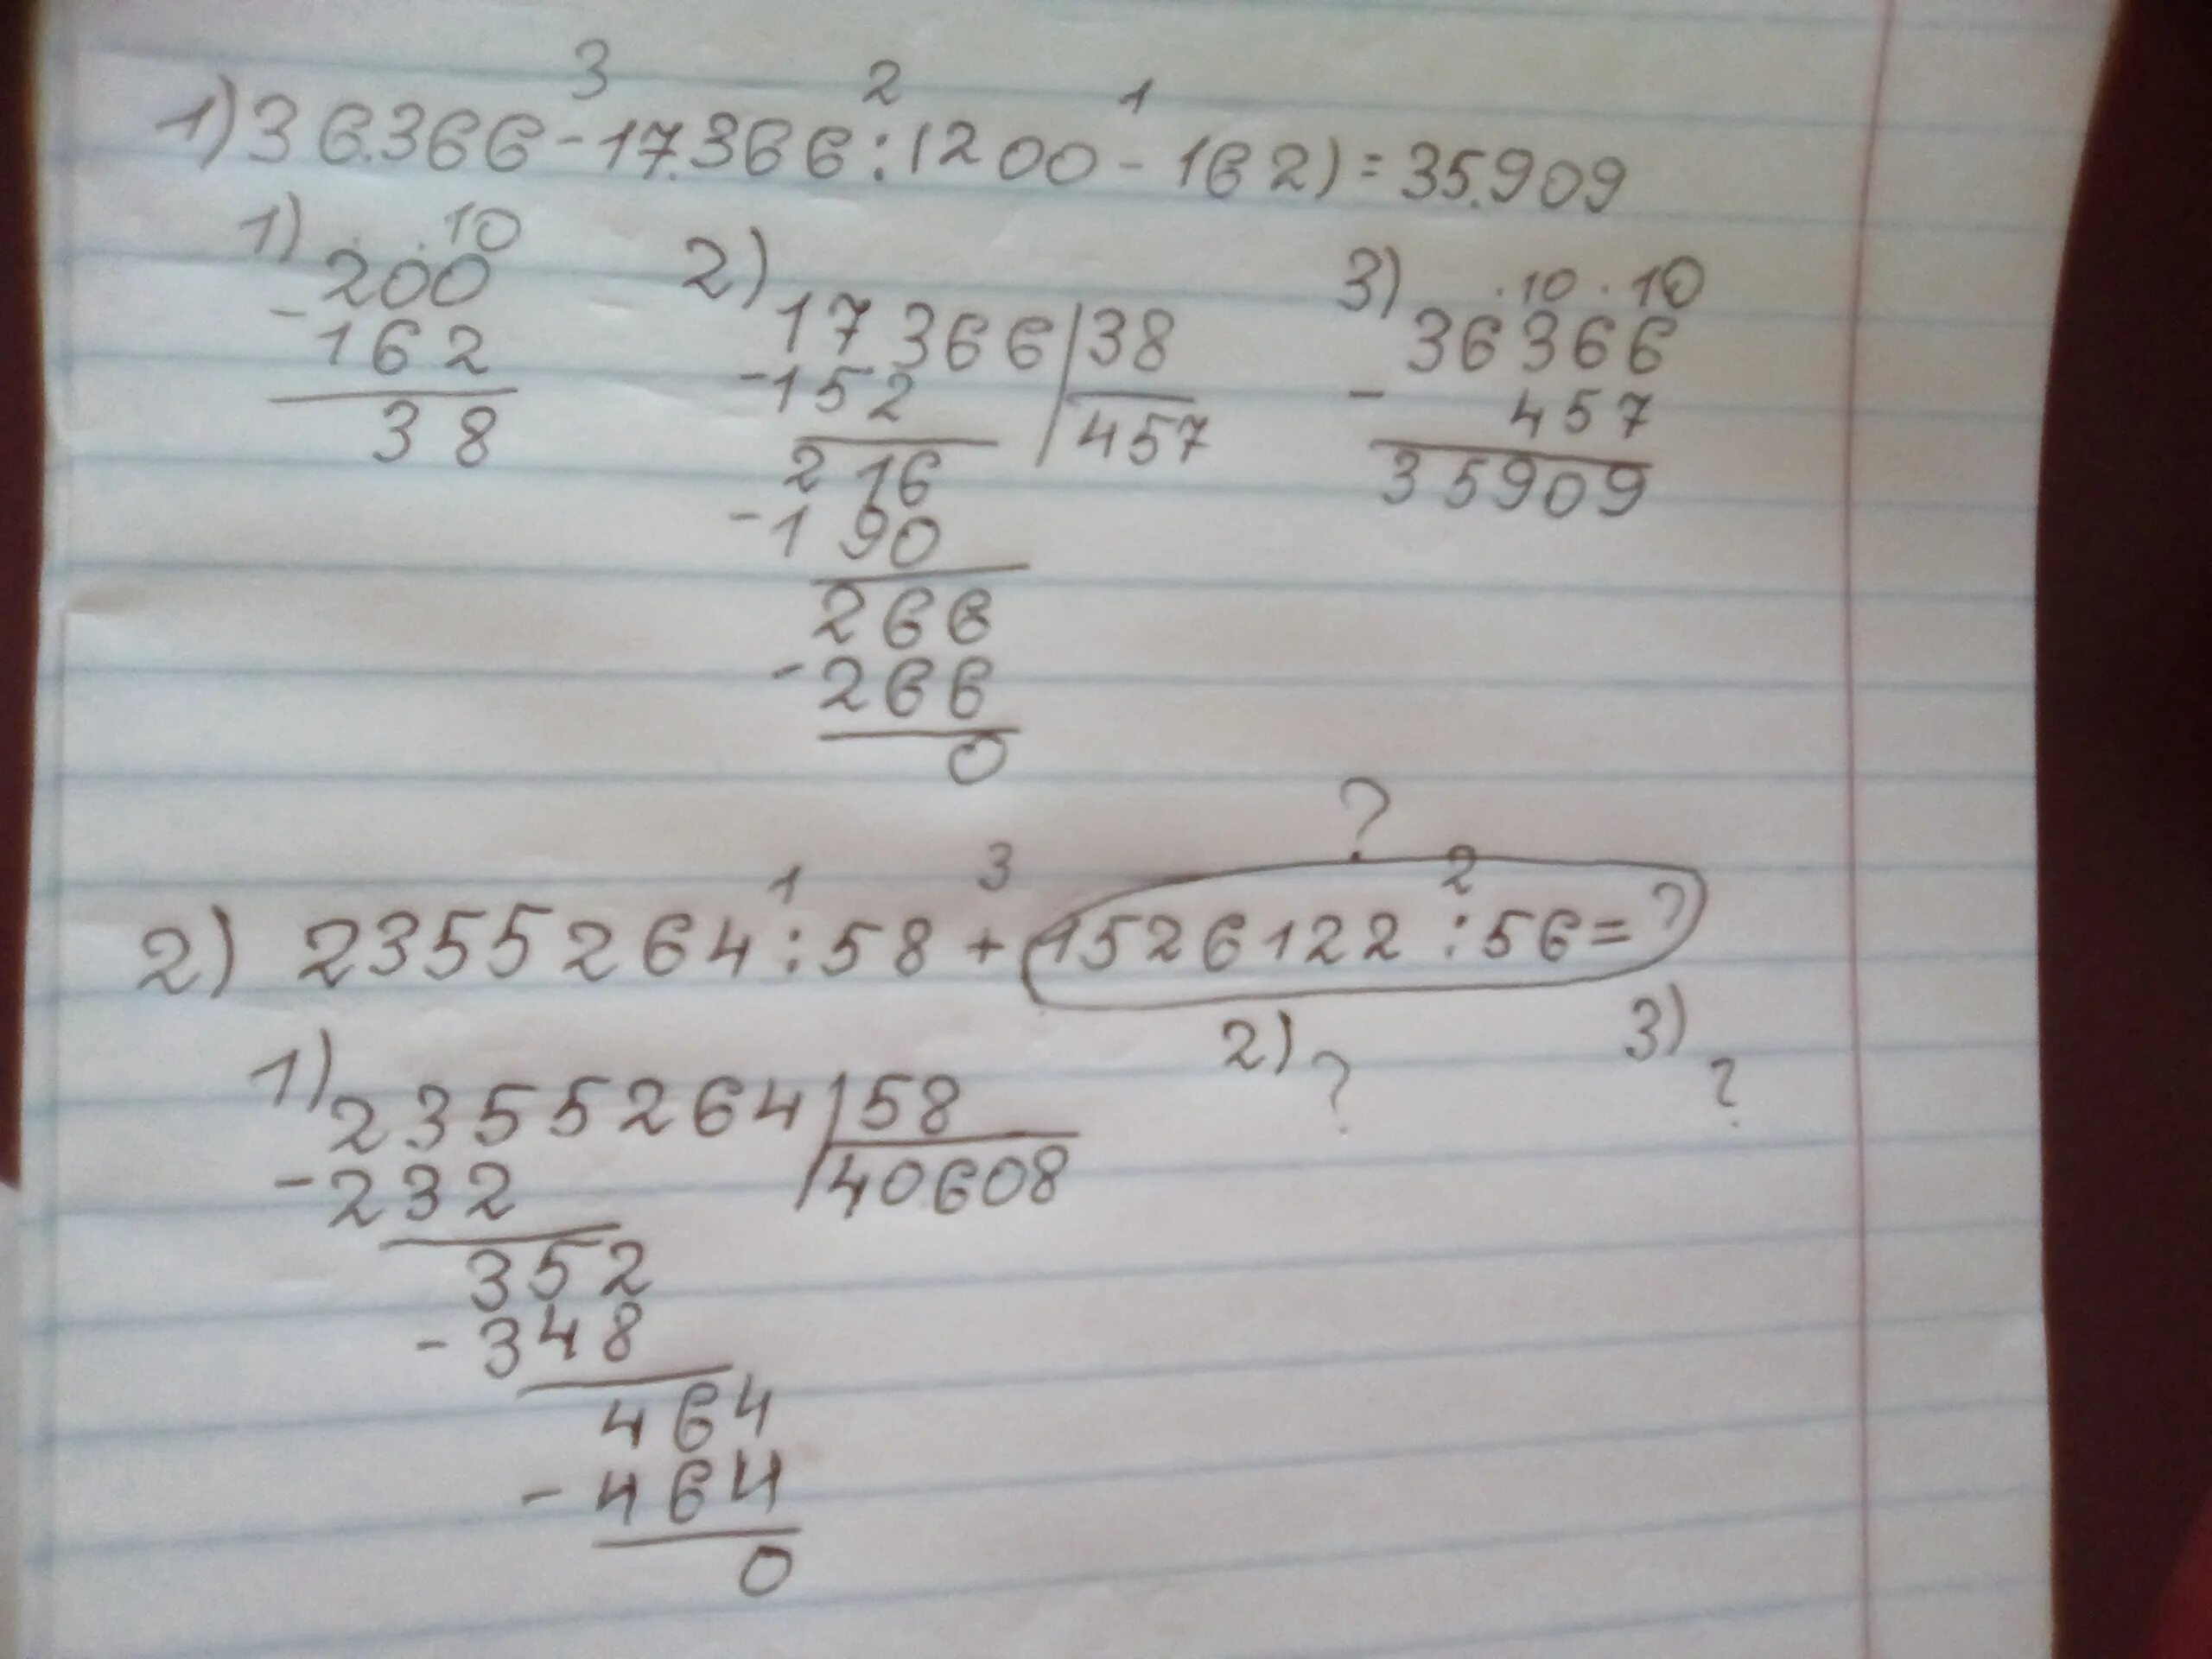 3 2 1
1) 36.366 - 17.366 : (200 - 162) = 35.909
1) . . 10
200
- 162
38
2)
17 366 | 38
- 152
457
216
- 190
266
- 266
0
3) . 10 . 10
36366
- 457
35909
?
1 3 2
2) 2355264 : 58 + 1526122 : 56 = ?
1)
2355264 | 58
- 232
40608
352
- 348
464
- 464
0
2) ?
3) ?